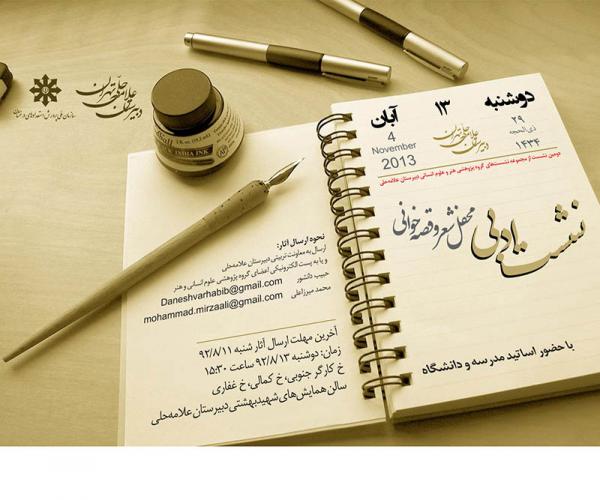 دبیرستان علامه‌حلی تهران
سازمان ملی پرورش استعدادهای درخشان
INDIA INK
دوشنبه ۱۳ آبان
4
November
2013
دبیرستان علامه‌حلی تهران
۲۹
ذی‌الحجه
۱۴۳۴
دومین نشست از مجموعه نشست‌های گروه پژوهشی هنر و علوم انسانی دبیرستان علامه‌حلی
نشست ادبی
محفل شعر و قصه خوانی
با حضور اساتید مدرسه و دانشگاه
نحوه ارسال آثار:
ارسال به معاونت تربیتی دبیرستان علامه‌حلی
و یا به پست الکترونیکی اعضای گروه پژوهشی علوم انسانی و هنر
حبیب دانشور
Daneshvarhabib@gmail.com
محمد میرزاعلی
mohammad.mirzaali@gmail.com
آخرین مهلت ارسال آثار شنبه ۹۲/۸/۱۱
زمان: دوشنبه ۹۲/۸/۱۳ ساعت ۱۵:۳۰
خ کارگر جنوبی، خ کمالی، خ غفاری
سالن همایش‌های شهیدبهشتی دبیرستان علامه‌حلی